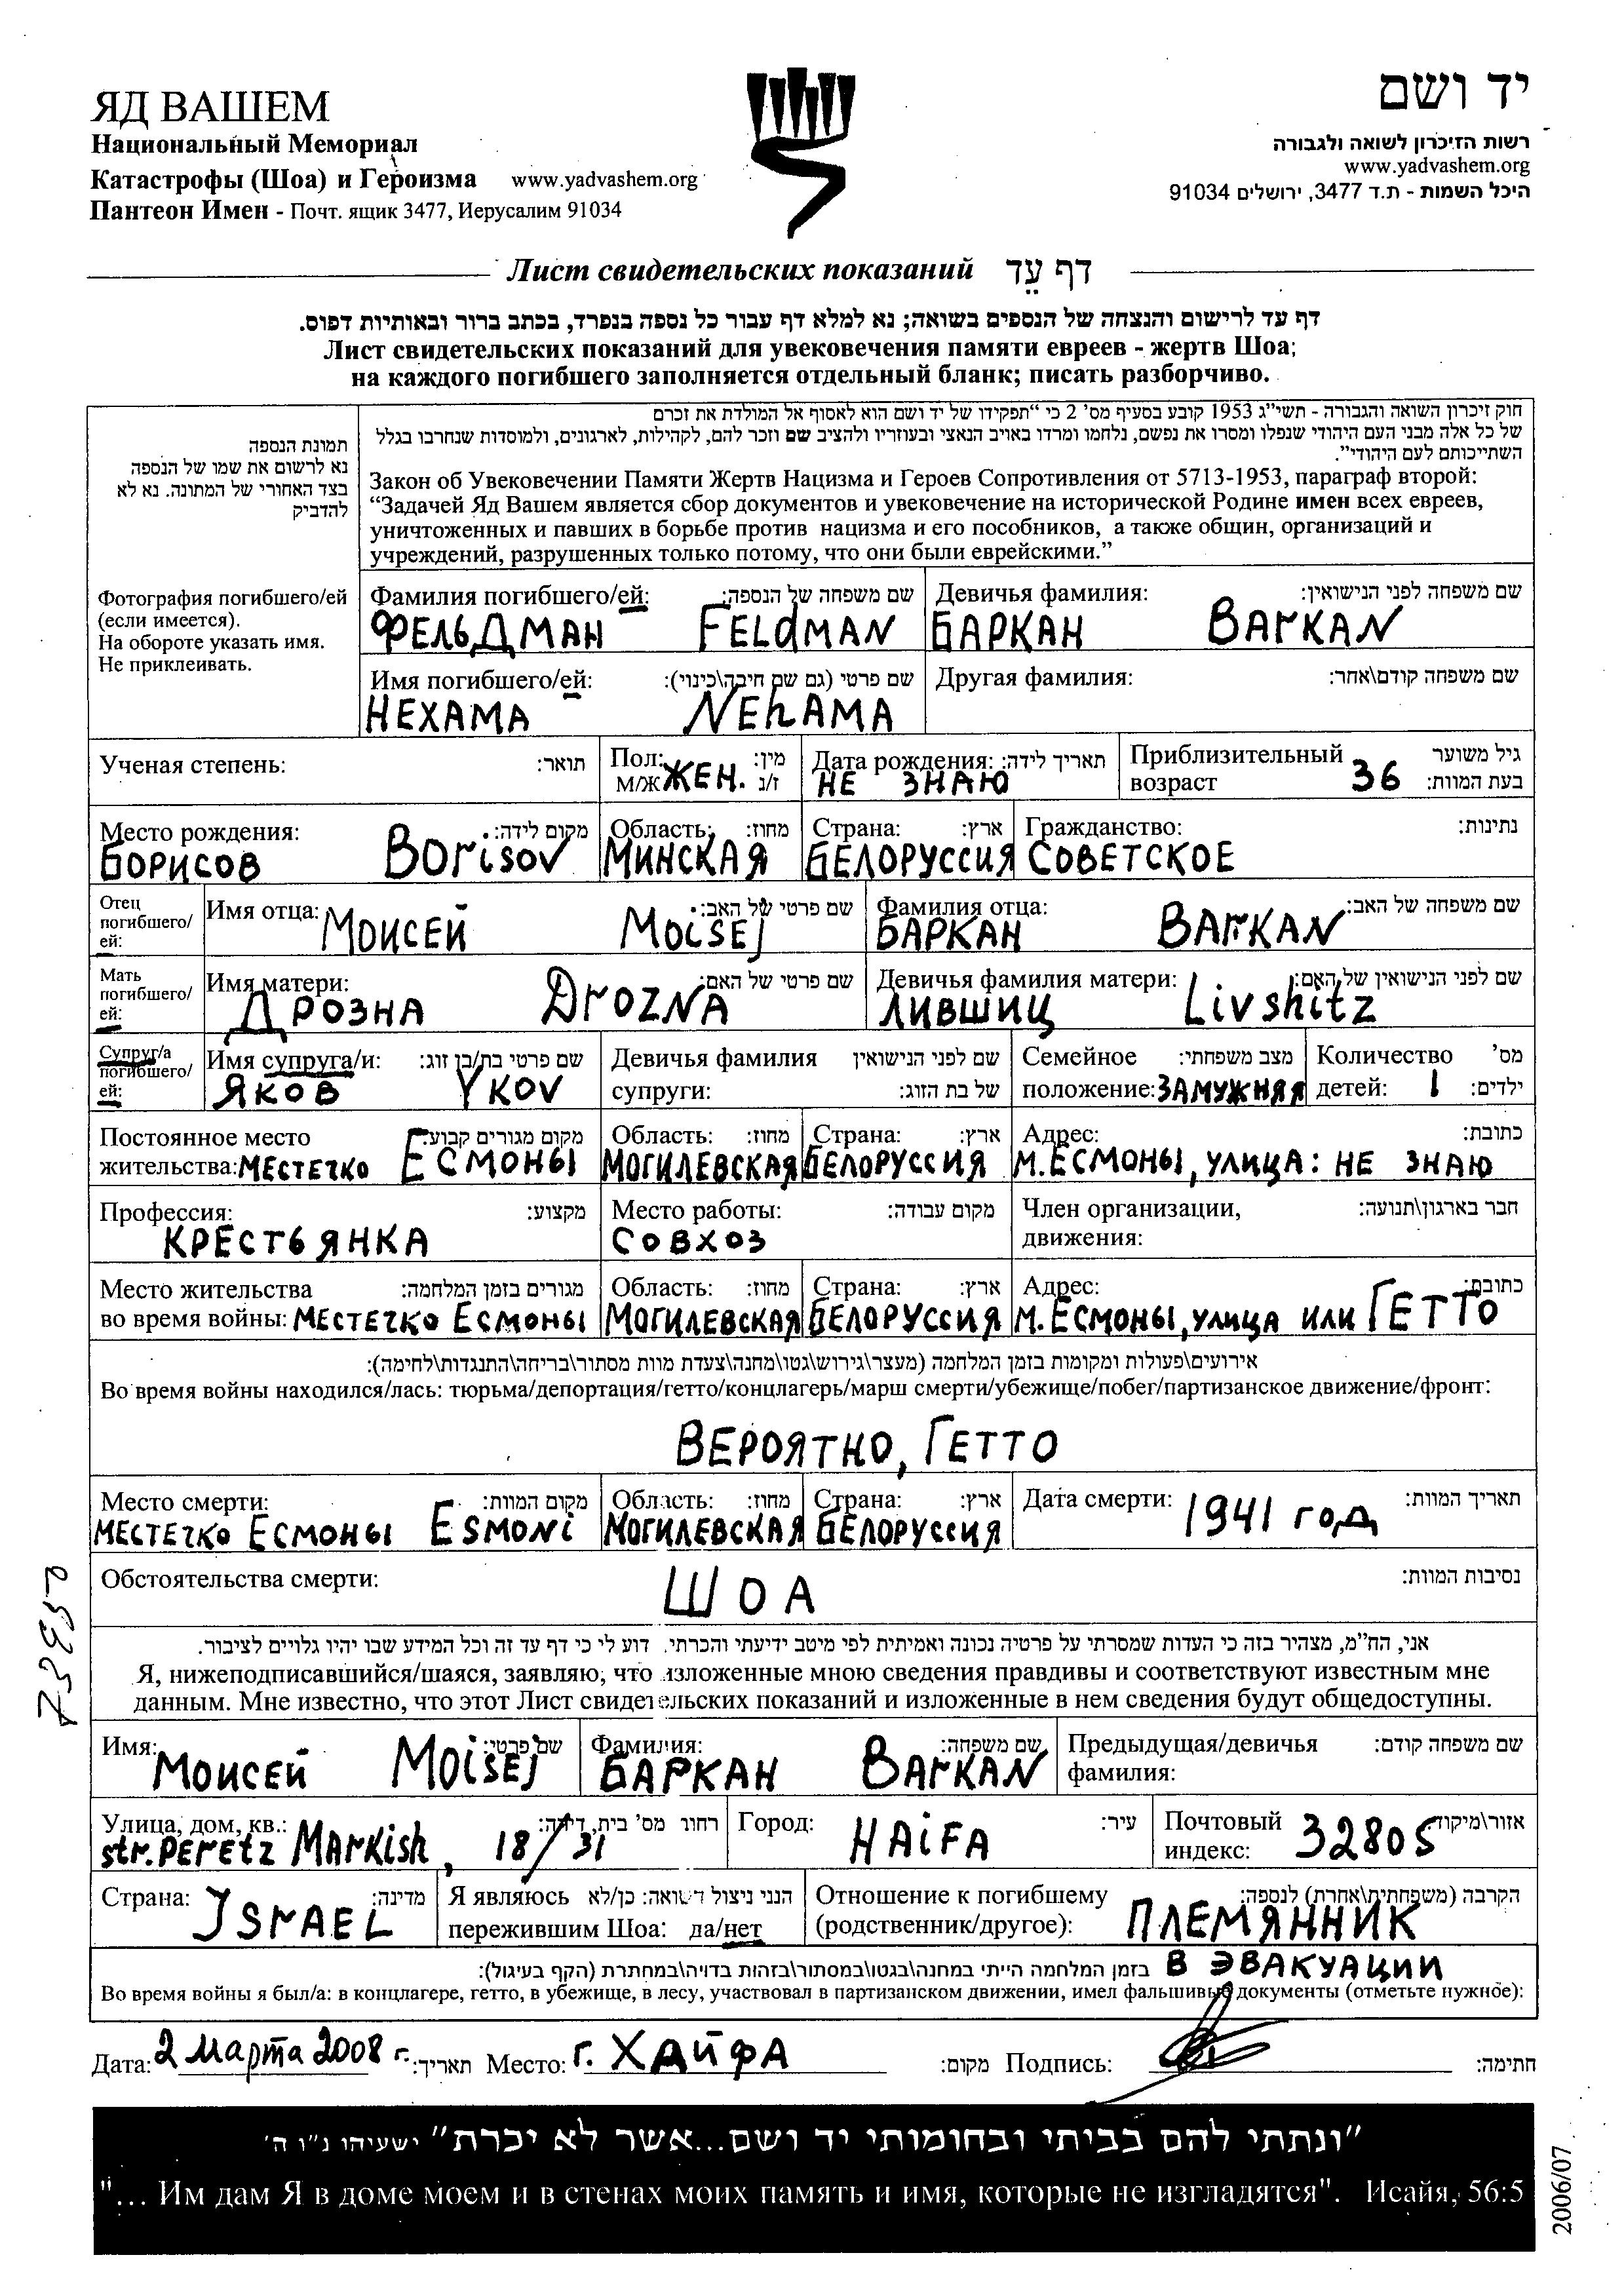 ЯД ВАШЕМ
Национальный Мемориал
Катастрофы (Шоа) и Героизма www.yadvashem.org
Пантеон Имен - Почт. ящик 3477, Иерусалим 91034
יד ושם
רשות הזיכרון לשואה ולגבורה
www.yadvashem.org
היכל השמות - ת.ד 3477, ירושלים 91034
Лист свидетельских показаний דף עֵד
דף עד לרישום והנצחה של הנספים בשואה; נא למלא דף עבור כל נספה בנפרד, בכתב ברור ובאותיות דפוס.
Лист свидетельских показаний для увековечения памяти евреев - жертв Шоа;
на каждого погибшего заполняется отдельный бланк; писать разборчиво.
תמונת הנספה
נא לרשום את שמו של הנספה
בצד האחורי של המתונה. נא לא
להדביק
Фотография погибшего/ей
(если имеется).
На обороте указать имя.
Не приклеивать.
חוק זיכרון השואה והגבורה - תשי"ג 1953 קובע בסעיף מס' 2 כי "תפקידו של יד ושם הוא לאסוף אל המולדת את זכרם
של כל אלה מבני העם היהודי שנפלו ומסרו את נפשם, נלחמו ומרדו באויב הנאצי ובעוזריו ולהציב שם וזכר להם, לקהילות, לארגונים, ולמוסדות שנחרבו בגלל
השתייכותם לעם היהודי".
Закон об Увековечении Памяти Жертв Нацизма и Героев Сопротивления от 5713-1953, параграф второй:
"Задачей Яд Вашем является сбор документов и увековечение на исторической Родине имен всех евреев,
уничтоженных и павших в борьбе против нацизма и его пособников, а также общин, организаций и
учреждений, разрушенных только потому, что они были еврейскими."
Фамилия погибшего/ей: שם משפחה של הנספה: Девичья фамилия: שם משפחה לפני הנישואין:
ФЕЛЬДМАН FELdMAN БАРКАН BArKAN
Имя погибшего/ей: שם פרטי (גם שם חיבה\כינוי): Другая фамилия: שם משפחה קודם\אחר:
НЕХАМА NEhAMA
Ученая степень: תואר: Пол: מין: Дата рождения: תאריך לידה: Приблизительный גיל משוער
М/Ж ЖЕН. ז/נ НЕ ЗНАЮ возраст 36 בעת המוות:
Место рождения: מקום לידה: Область: מחוז: Страна: ארץ: Гражданство: נתינות:
БОРИСОВ Borisov МИНСКАЯ БЕЛОРУССИЯ СОВЕТСКОЕ
Отец
погибшего/
ей:
Имя отца: МОИСЕЙ Moisej שם פרטי של האב: Фамилия отца: שם משפחה של האב:
БАРКАН BArKAN
Мать
погибшего/
ей:
Имя матери: שם פרטי של האם: Девичья фамилия матери: שם לפני הנישואין של האם:
ДРОЗНА DrOZNA ЛИВШИЦ Livshitz
Супруг/а
погибшего/
ей:
Имя супруга/и: שם פרטי בת/בן זוג: Девичья фамилия שם לפני הנישואין Семейное מצב משפחתי: Количество מס'
ЯКОВ YKOV супруги: של בת הזוג: положение: ЗАМУЖНЯЯ детей: 1 ילדים:
Постоянное место מקום מגורים קבוע: Область: מחוז: Страна: ארץ: Адрес: כתובת:
жительства: МЕСТЕЧКО ЕСМОНЫ МОГИЛЕВСКАЯ БЕЛОРУССИЯ М.ЕСМОНЫ, УЛИЦА: НЕ ЗНАЮ
Профессия: מקצוע: Место работы: מקום עבודה: Член организации, חבר בארגון\תנועה:
КРЕСТЬЯНКА СОВХОЗ движения:
Место жительства מגורים בזמן המלחמה: Область: מחוז: Страна: ארץ: Адрес: כתובת:
во время войны: МЕСТЕЧКО ЕСМОНЫ МОГИЛЕВСКАЯ БЕЛОРУССИЯ М.ЕСМОНЫ, УЛИЦА ИЛИ ГЕТТО
אירועים\פעולות ומקומות בזמן המלחמה (מעצר\גירוש\גטו\מחנה\צעדת מוות מסתור\בריחה\התנגדות\לחימה):
Во время войны находился/лась: тюрьма/депортация/гетто/концлагерь/марш смерти/убежище/побег/партизанское движение/фронт:
ВЕРОЯТНО, ГЕТТО
Место смерти: מקום המוות: Область: מחוז: Страна: ארץ: Дата смерти: 1941 год תאריך המוות:
МЕСТЕЧКО ЕСМОНЫ ESMONi МОГИЛЕВСКАЯ БЕЛОРУССИЯ
Обстоятельства смерти: ШОА נסיבות המוות:
אני, הח"מ, מצהיר בזה כי העדות שמסרתי על פרטיה נכונה ואמיתית לפי מיטב ידיעתי והכרתי. דוע לי כי דף עד זה וכל המידע שבו יהיו גלויים לציבור.
Я, нижеподписавшийся/шаяся, заявляю, что изложенные мною сведения правдивы и соответствуют известным мне
данным. Мне известно, что этот Лист свидетельских показаний и изложенные в нем сведения будут общедоступны.
Имя: שם פרטי: Фамилия: שם משפחה: Предыдущая/девичья שם משפחה קודם:
МОИСЕЙ MOiSEj БАРКАН BArKAN фамилия:
Улица, дом, кв.: רחוב מס' בית, דירה: Город: HAiFA עיר: Почтовый 32805 אזור\מיקוד:
str. PErEtz MArKish, 18/31 индекс:
Страна: ISrAEL מדינה: Я являюсь הנני ניצול השואה: כן/לא Отношение к погибшему הקרבה (משפחתית\אחרת) לנספה:
пережившим Шоа: да/нет (родственник/другое): ПЛЕМЯННИК
בזמן המלחמה הייתי במחנה\בגטו\במסתור\בזהות בדויה\במחתרת (הקף בעיגול): В ЭВАКУАЦИИ
Во время войны я был/а: в концлагере, гетто, в убежище, в лесу, участвовал в партизанском движении, имел фальшивые документы (отметьте нужное):
Дата: 2 марта 2008 г. תאריך: Место: г. ХАЙФА מקום: Подпись: חתימה:
"ונתתי להם בביתי ובחומותי יד ושם...אשר לא יכרת" ישעיהו נ"ו ה'
"... Им дам Я в доме моем и в стенах моих память и имя, которые не изгладятся". Исайя, 56:5
2006/07